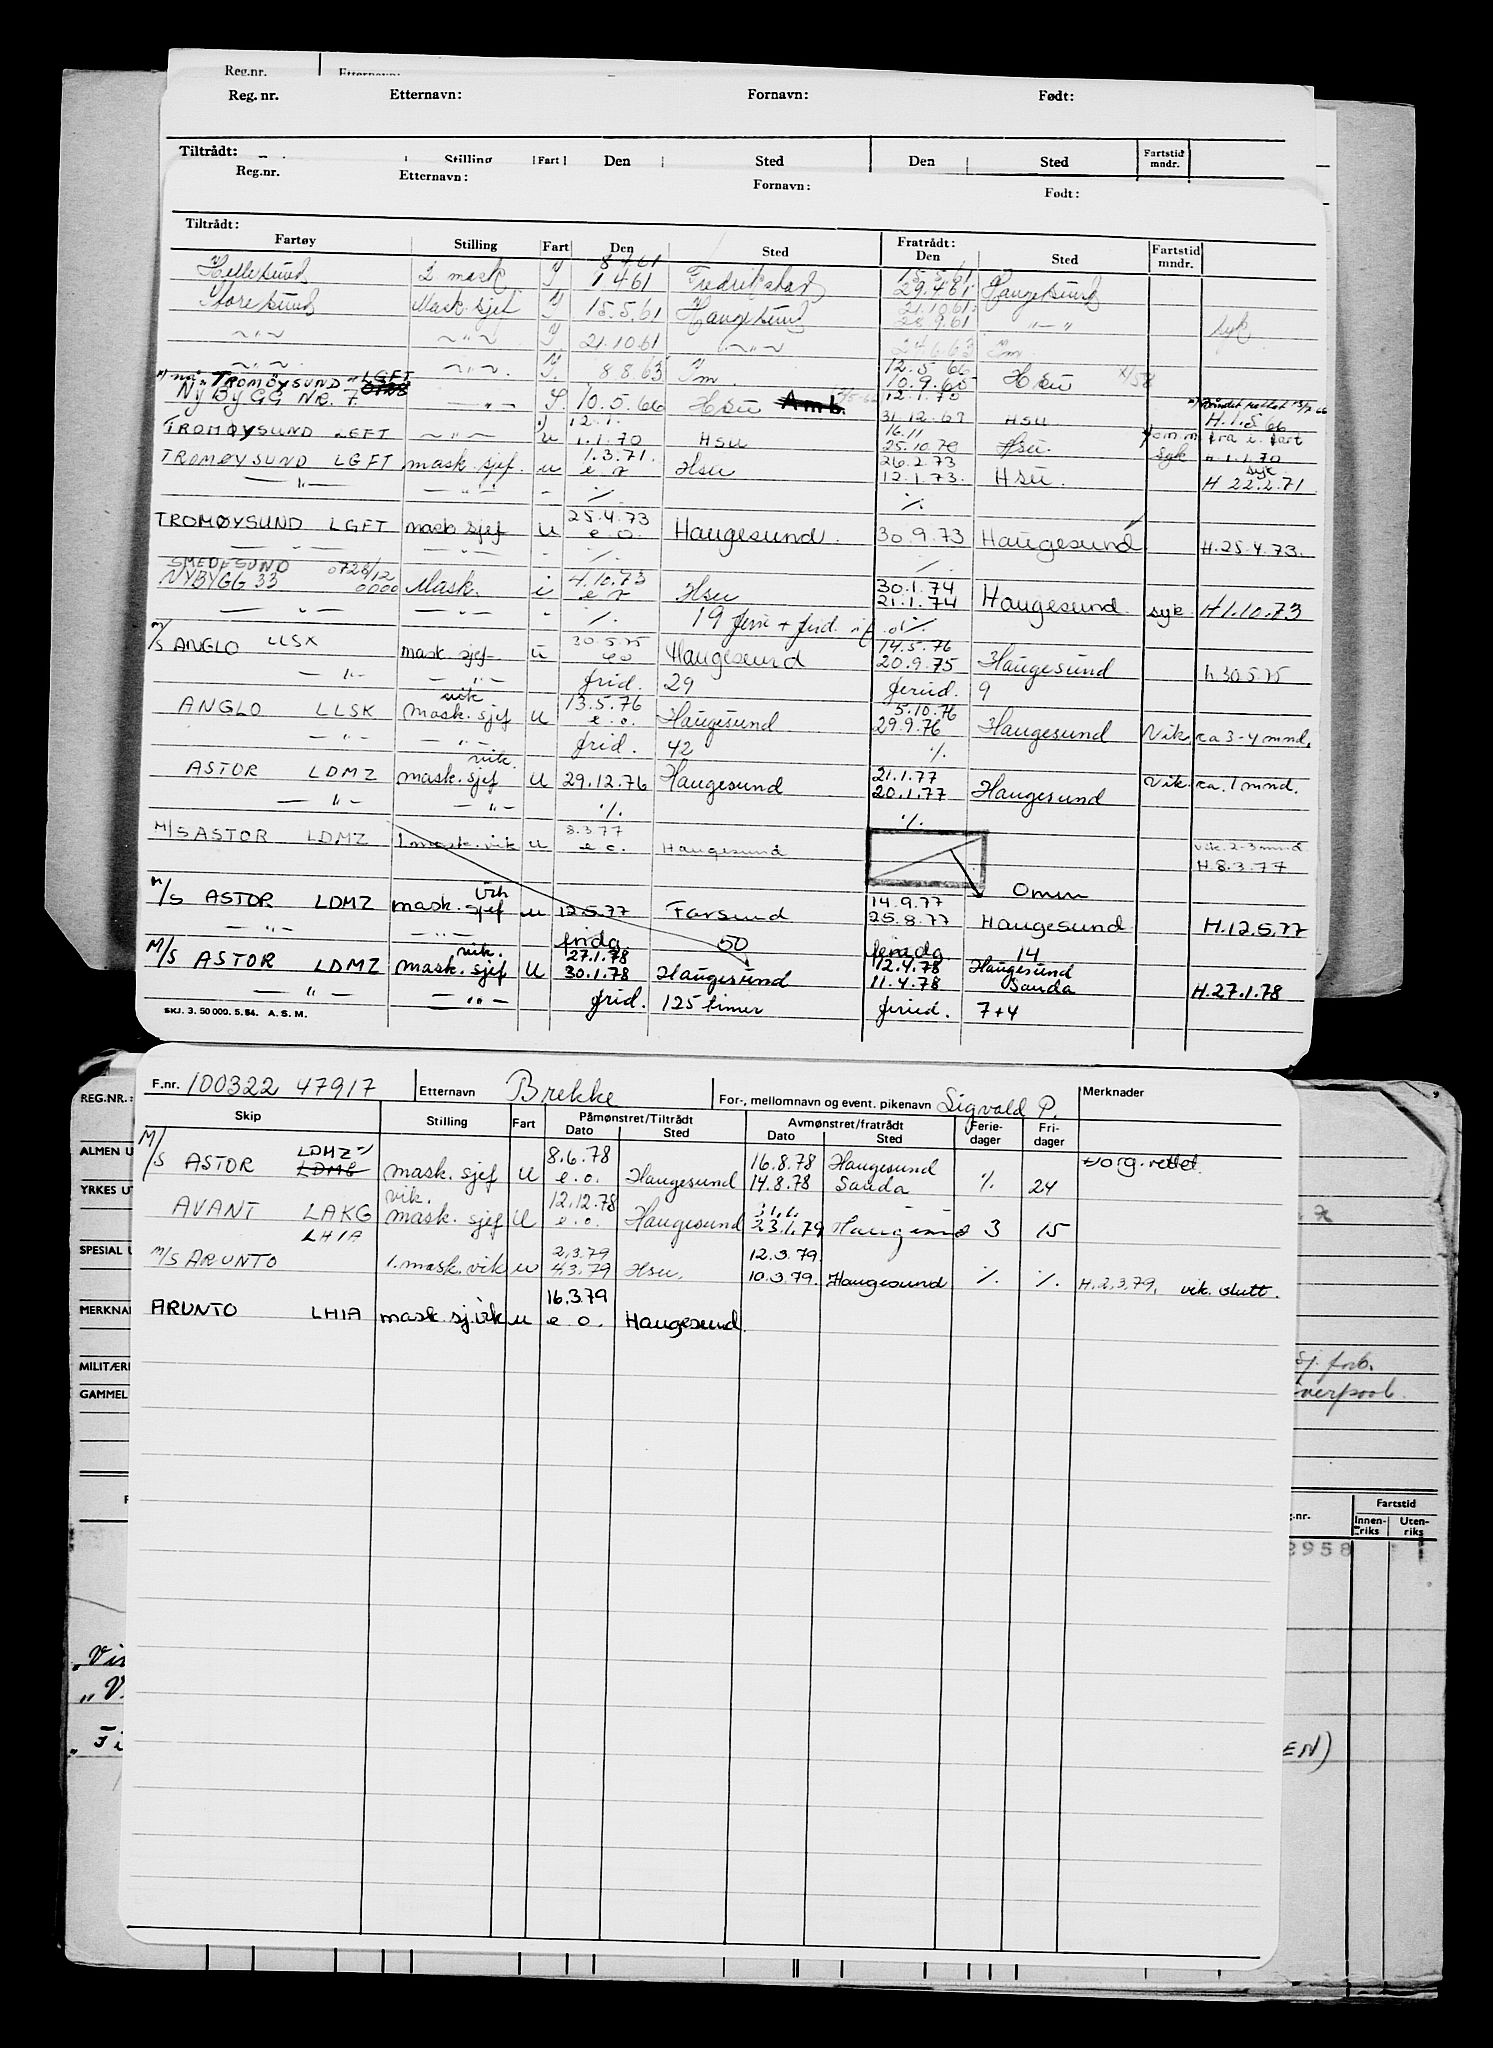 Reg.nr. Etternavn:
Reg. nr. Etternavn: Fornavn: Født:
Tiltrådt: Stilling Fart Den Sted Den Sted Fartstid mndr.
Reg.nr. Etternavn: Fornavn: Født:
Tiltrådt: Fratrådt:
Fartøy Stilling Fart Den Sted Den Sted Fartstid mndr.
8 7 61 15.5.61
Hellesund 2 mask 1 4 61 Fredrikstad 29.4.61 Haugesund
Storesund Mask. sjef 15.5.61 Haugesund 21.10.61 28.9.61 — " — syk
— " — — " — 21.10.61 — " — 24.6.63
— " — — " — 8 8 63 12.5 66 10.9.65 Hsu
"TROMØYSUND" LGFT
NYBYGG NR. 7 — " — 10.5.66 Hsu Amb. 12.1.70
12.1. 31.12.69 Hsu H.1.5 66
TROMØYSUND LGFT — " — u 1.1.70 Hsu 16.11 25.10.70 Hsu. fra i. fart H.1.1.70
1.3.71. syk syk
TROMØYSUND LGFT mask. sjef. u e r Hsu 26.2.73 12.1.73. Hsu. H 22.2.71.
— " — — " — - ./. ./.
25.4.73
TROMØYSUND LGFT mask sjef u e.o. Haugesund. 30.9.73 Haugesund H.25.4.73.
— " — — " — - ./. ./.
SMEDESUND 0728/12 4.10.73 30.1.74
NYBYGG 33 0000 Mask. i e r Hsu 21.1.74 Haugesund syk H 1.10.73
— " — — " — - ./. 19 ferie + frid. ./.
30.5.75 14.5.76
M/S ANGLO LLSK mask. sjef u eo Haugesund 20.9.75 Haugesund h 30 5.75
— " — — " — frid. 29 feried. 9
vik 13.5.76 5.10.76
ANGLO LLSK mask. sjef u e.o. Haugesund 29.9.76 Haugesund Vik. ca 3-4 mnd.
— " — — " — frid. 42 ./.
vik. 21.1.77
ASTOR LDMZ mask. sjef u 29.12.76 Haugesund 20.1.77 Haugesund Vik. ca. 1 mnd.
— " — — " — ./. ./.
8.3 77 vik. 2-3 mnd
M/S ASTOR LDMZ 1 mask. vik u e o. Haugesund H.8.3.77
Omm
vik 14.9.77
M/S ASTOR LDMZ mask. sjef u 12.5.77 Farsund 25.8.77 Haugesund H.12.5.77
— " — — " — fridg. 50 feriedg 14
vik. 27.1.78 12.4.78 Haugesund
M/S ASTOR LDMZ mask. sjef u 30.1.78 Haugesund 11.4.78 Sauda H.27.1.78
— " — — " — frid. 125 timer feried. 7+4
SKJ. 3. 50 000. 5. 54. A. S. M.
F.nr. 100322 47917 Etternavn Brekke For-, mellomnavn og event. pikenavn Sigvald P. Merknader
Skip Stilling Fart Påmønstret/Tiltrådt Dato Sted Avmønstret/fratrådt Dato Sted Feriedager Fridager
M/S ASTOR LDMZ LDMG mask. sjef u 8.6.78 e.o. Haugesund 16.8.78 14.8.78 Haugesund Sauda ./. 24 org. rettet.
vik. 12.12.78
AVANT LAKG mask. sjef u e.o. Haugesund 23.1.79 Haugesund 3 15
LHIA 2.3.79 12.3.79
M/S ARUNTO 1. mask. vik u 4.3.79 Hsu. 10.3.79. Haugesund ./. ./. H.2.3.79. vik. slutt.
16.3.79
ARUNTO LHIA mask. sj.vik u e o. Haugesund.
REG.NR.:
ALMEN U
YRKES U
SPESIAL U
MERKNA
MILITÆR
GAMMEL
sj. forb.
iverpool.
g.nr. Fartstid
Innenriks Utenriks
2958 1
„Vi
„V
„Fi
EN)